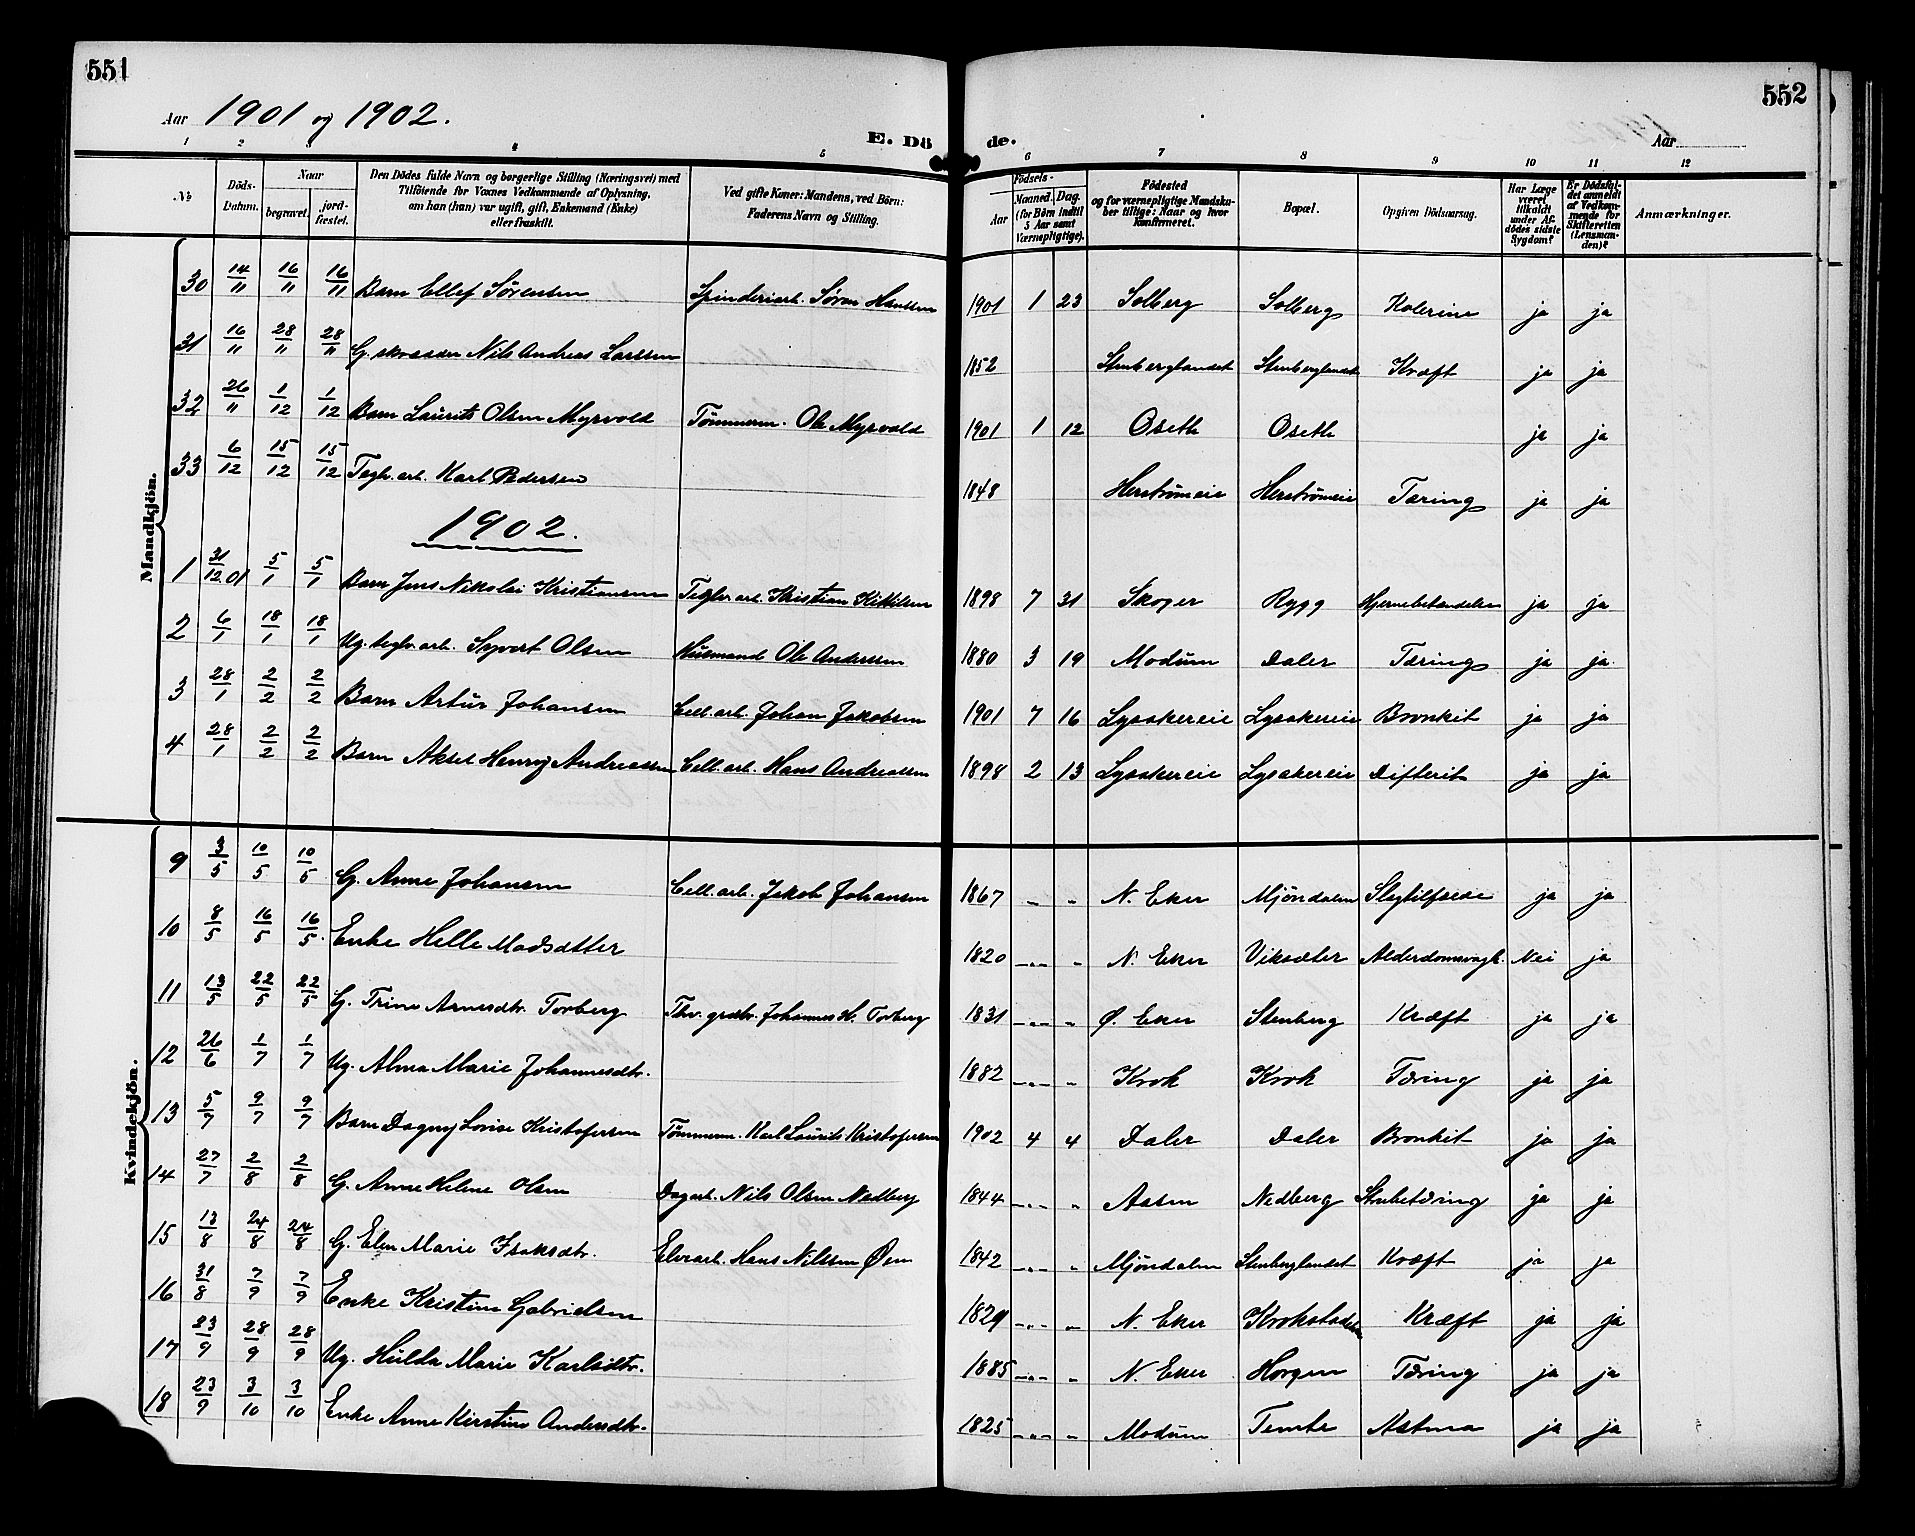 551
552
Aar 1901 og 1902.
Aar
E. Dö de.
1 2 3 4 5 6 7 8 9 10 11 12
№ Döds-Datum. Naar begravet. jordfæstet. Den Dödes fulde Navn og borgerlige Stilling (Næringsvei) med Tilföiende for Voxnes Vedkommende af Oplysning, om han (hun) var ugift, gift, Enkemand (Enke) eller fraskilt. Ved gifte Koner: Mandens, ved Börn: Faderens Navn og Stilling. Födsels- Aar Maaned. Dag. (for Börn indtil 5 Aar samt Værnepligtige). Födested og for værnepligtige Mandskaber tillige: Naar og hvor konfirmeret. Bopæl. Opgiven Dödsaarsag. Har Læge været tilkaldt under Afdödes sidste Sygdom? Er Dödsfaldet anmeldt af Vedkommende for Skifteretten (Lensmanden)? Anmærkninger.
Mandkjön.
30 14/11 16/11 16/11 Barn Ellef Sørensen Spinderiarb. Søren Hansen 1901 1 23 Solberg Solberg Kolerine ja ja
31 16/11 28/11 28/11 G. skrædder Nils Andreas Larssen 1852 Stenberglandet Stenberglandet Kræft ja ja
32 26/11 1/12 1/12 Barn Laurits Olsen Myrvold Tømmerm. Ole Myrvold 1901 1 12 Oseth Oseth ja ja
33 6/12 15/12 15/12 Teglv. arb. Karl Pedersen 1848 Herstrømeie Herstrømeie Tæring ja ja
1902.
1 31/12 01 5/1 5/1 Barn Jens Nikolai Kristiansen Teglv. arb. Kristian Kittilsen 1898 7 31 Skoger Rygg ja ja
2 6/1 18/1 18/1 Ug. teglv. arb. Syvert Olsen Husmand Ole Andersen 1880 3 19 Modum Daler Tæring ja ja.
3 28/1 2/2 2/2 Barn Artur Johansen Cell. arb. Johan Jakobsen 1901 7 16 Lysakereie Lysakereie Bronkit ja ja
4 28/1 2/2 2/2 Barn Aksel Henry Andreassen Cell. arb. Hans Andreassen 1898 2 13 Lysakereie Lysakereie Difterit ja ja
Kvindekjön.
9 3/5 10/5 10/5 G. Anne Johansen Cell. arb. Jakob Johansen 1867 - " N. Eker Mjøndalen Slagtilfælde ja ja
10 8/5 16/5 16/5. Enke Helle Madsdatter 1820 -"- " N. Eker Viksæter Alderdomsvagh. Nei ja
11 13/5 22/5 22/5 G. Trine Arnesdtr. Torberg Johannes H. Torberg 1831 -"- " Ø. Eker Stenberg Kræft ja ja
12 26/6 1/7 1/7 Ug. Alma Marie Johannesdtr. 1882 -"- " Krok Krok Tæring ja ja
13 5/7 9/7 9/7 Barn Dagny Lovise Kristofersen Tømmerm. Karl Laurits Kristofersen 1902 4 4 Daler Daler Bronkit ja ja
14 27/7 2/8 2/8 G. Anne Helene Olsen Dagarb. Nils Olsen Nedberg 1844 -"- " Aasen Nedberg Strubetæring ja ja
15 13/8 24/8 24/8 G. Elen Marie Isaksdtr. Elvearb. Hans Nilssen Øen 1842 -"- " Mjøndalen Stenberglandet Kræft ja ja
16 31/8 7/9 7/9 Enke Kristine Gabrielsen 1829 -"- " N. Eker Krokstadelven Kræft ja ja
17 23/9 28/9 28/9 Ug. Hulda Marie Karlsdtr. 1885 -"- " N. Eker Horgen Tæring ja ja
18 23/9 3/10 3/10 Enke Anne Kirstine Andersdtr. 1825 -"- " Modum Temte Astma ja ja